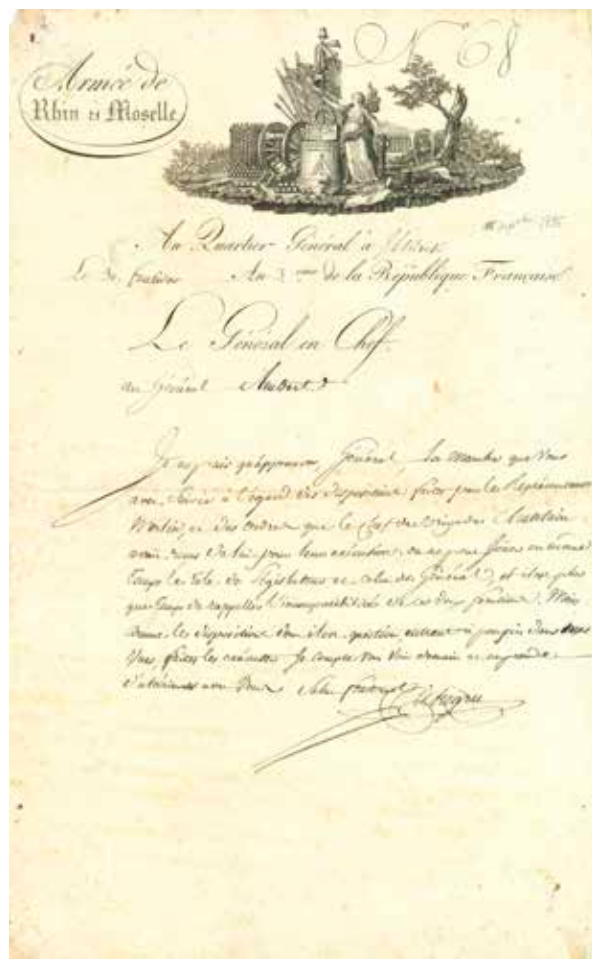 N° 8
Armée de
Rhin et Moselle
1795
Au Quartier Général à
Le 30 fructidor An 3 eme de la République Française
Le Général en Chef
au Général
Je ne puis qu'approuver, Général, la manière que vous
avez suivie à l'égard des dispositions faites par le Représentant
Merlin, et des ordres que le chef de Brigade
avait reçus de lui pour leur exécution. on ne peut faire en même
temps le rôle de législateur et celui de Général, et il est plus
que temps de rappeler l'incompatibilité de ces deux fonctions. Mais
comme les dispositions dont il est question, entrent à peu près dans mes
vues faites les exécuter. Je compte vous voir demain et
vous Salut fraternel
Pichegru